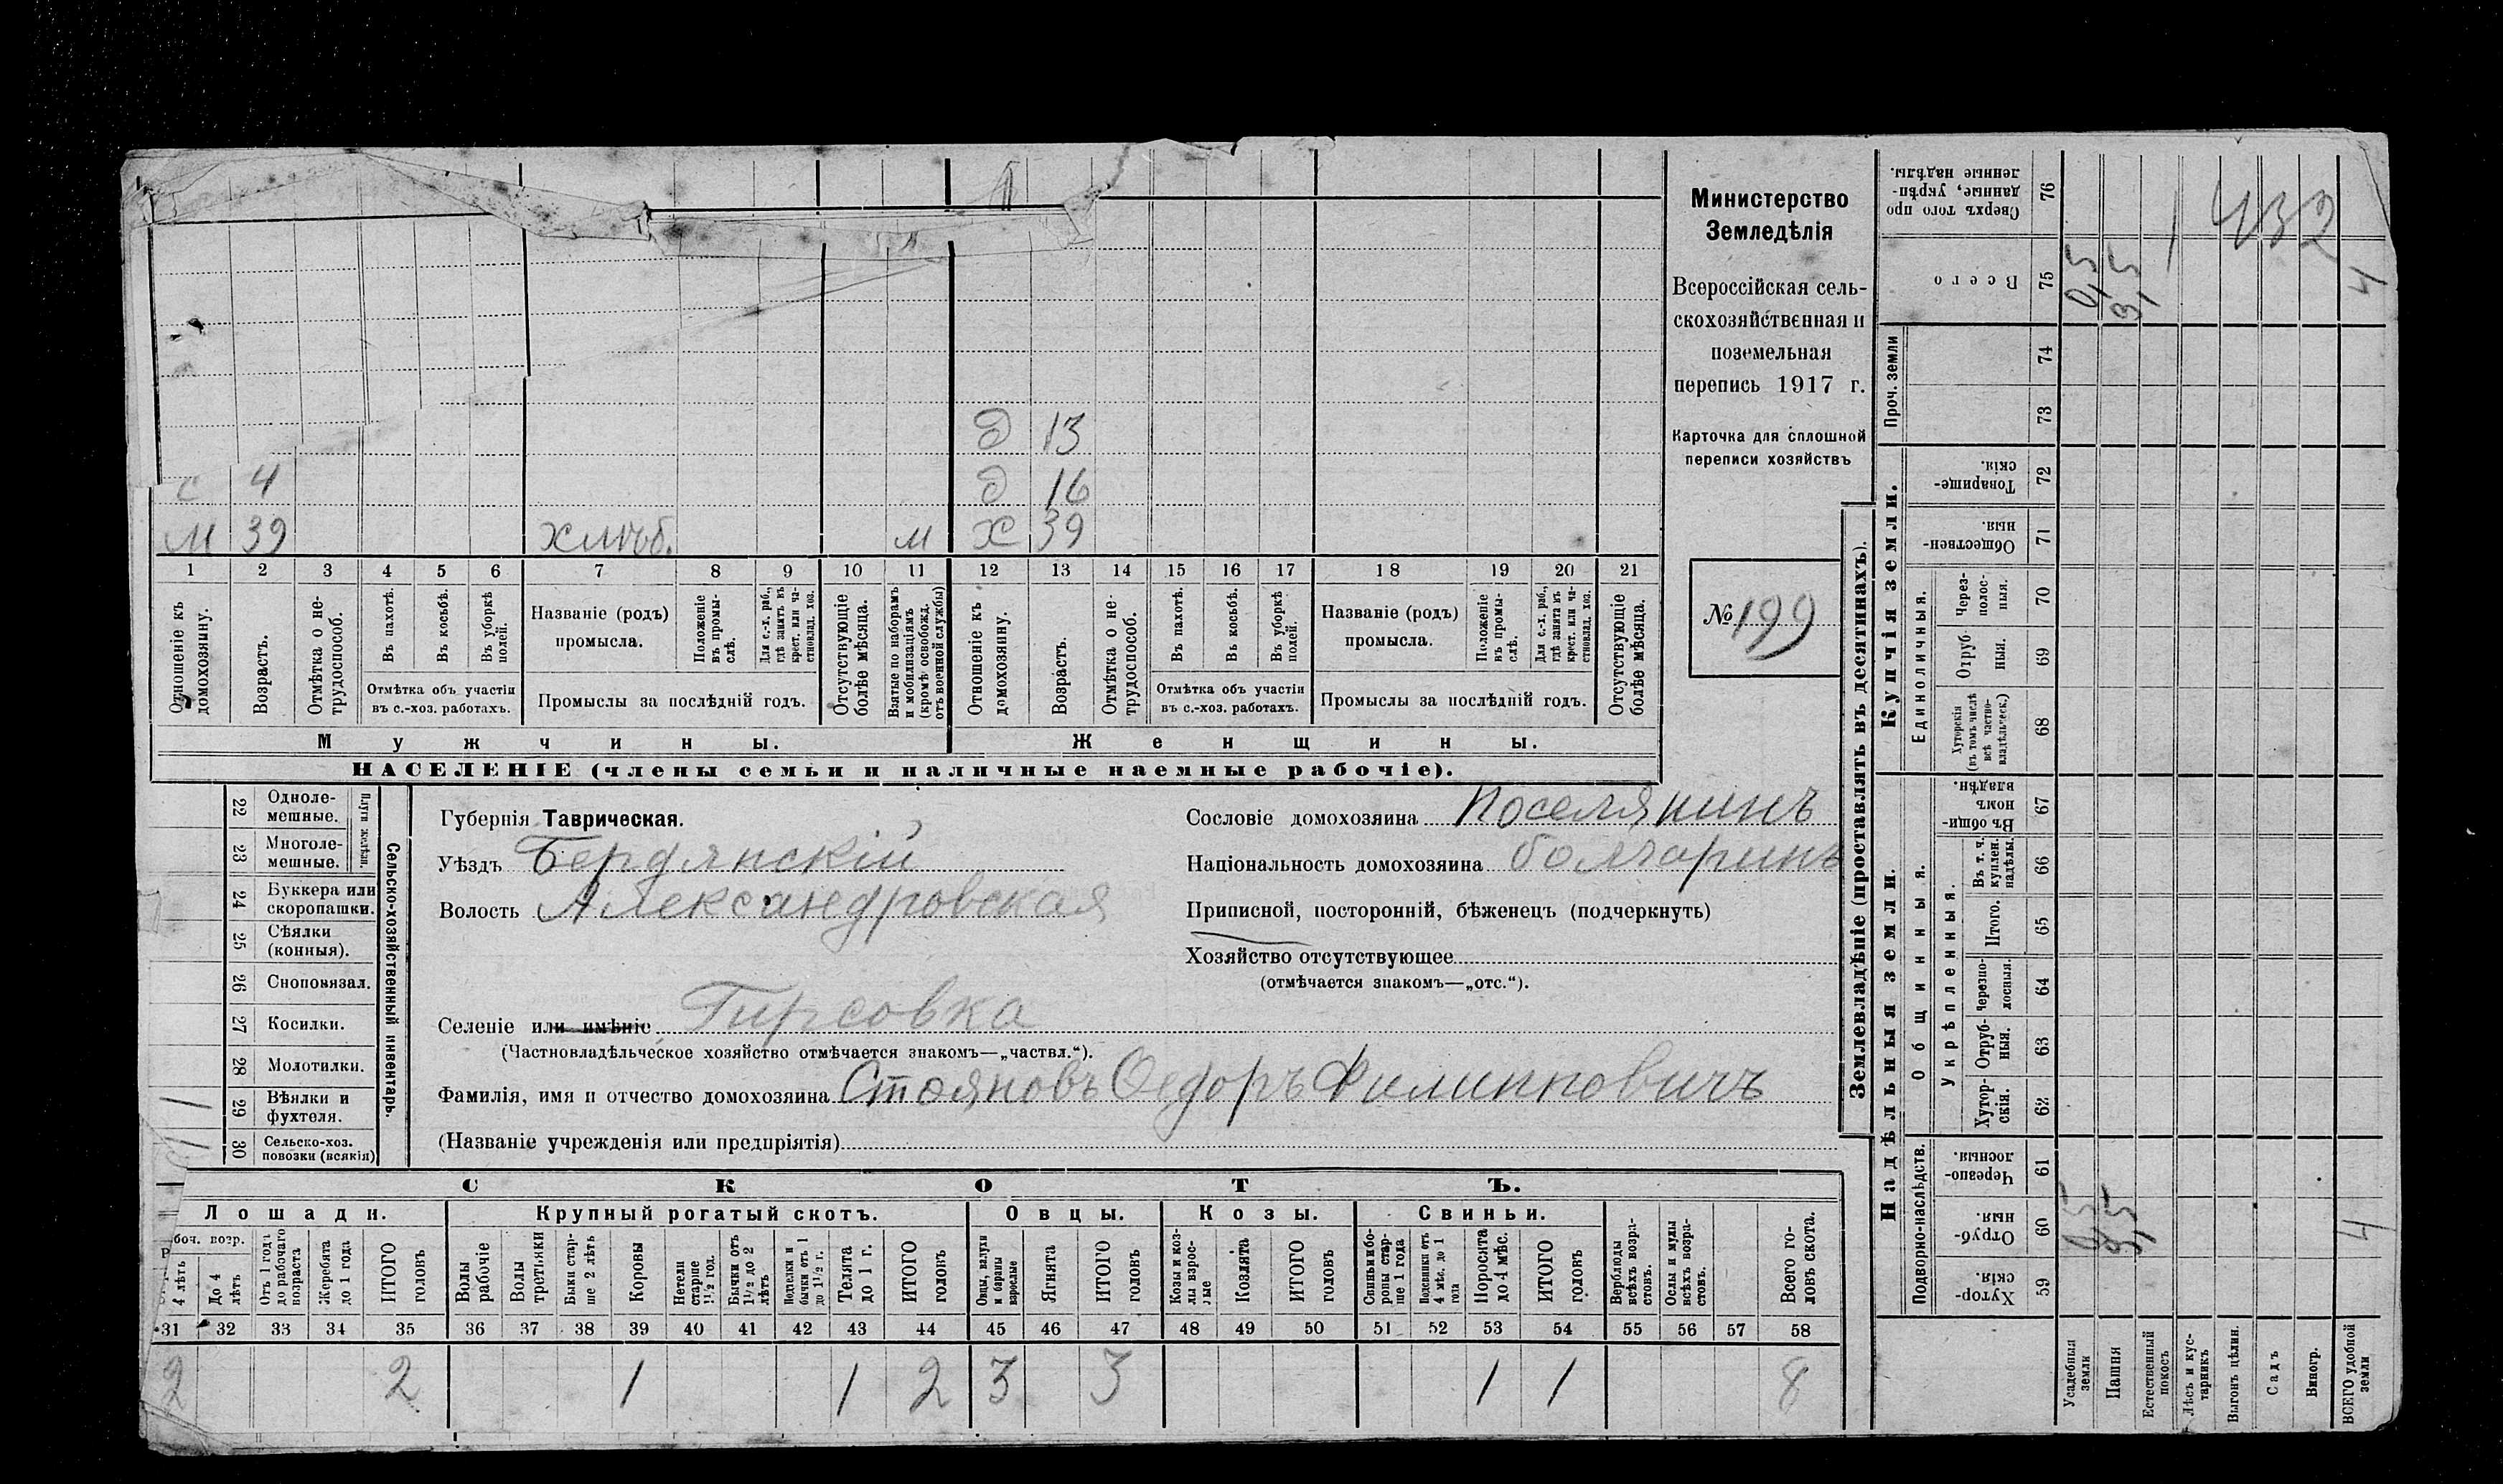 с 4
м 39 хлѣб. м х 39
д 13
д 16
1 2 3 4 5 6 7 8 9 10 11 12 13 14 15 16 17 18 19 20 21
Отношеніе къ домохозяину.
Возрастъ.
Отмѣтка о не-трудоспособ.
Въ пахотѣ.
Въ косьбѣ.
Въ уборкѣ полей.
Отмѣтка объ участіи
въ с.-хоз. работахъ.
Названіе (родъ)
промысла.
Положеніе въ промы-слѣ.
Для с.-х. раб., гдѣ занятъ въ крест. или ча-стновлад. хоз.
Промыслы за послѣдній годъ.
Отсутствующіе болѣе мѣсяца.
Взятые по наборамъ и мобилизаціямъ (кромѣ освобожд. отъ военной службы)
Отношеніе къ домохозяину.
Возрастъ.
Отмѣтка о не-трудоспособ.
Въ пахотѣ.
Въ косьбѣ.
Въ уборкѣ полей.
Отмѣтка объ участіи
въ с.-хоз. работахъ.
Названіе (родъ)
промысла.
Положеніе въ промы-слѣ.
Для с.-х. раб., гдѣ занята въ крест. или ча-стновлад. хоз.
Промыслы за послѣдній годъ.
Отсутствующіе болѣе мѣсяца.
Мужчины. Женщины.
НАСЕЛЕНІЕ (члены семьи и наличные наемные рабочіе).
Министерство
Земледѣлія
Всероссійская сель-
скохозяйственная и
поземельная
перепись 1917 г.
Карточка для сплошной
переписи хозяйствъ
№ 199
Сельско-хозяйственный инвентарь.
Плуги желѣзн.
22 Одноле-мешные.
23 Многоле-мешные.
24 Буккера или скоропашки.
25 Сѣялки (конныя).
26 Сноповязал.
27 Косилки.
28 Молотилки.
29 Вѣялки и фухтеля. 1
30 Сельско-хоз. повозки (всякія) 1
Губернія Таврическая.
Уѣздъ Бердянскій
Волость Александровская
Селеніе или имѣніе Гирсовка
(Частновладѣльческое хозяйство отмѣчается знакомъ—„частвл.“).
Фамилія, имя и отчество домохозяина Стояновъ Ѳедоръ Филипповичъ
(Названіе учрежденія или предпріятія)
Сословіе домохозяина Поселянинъ
Національность домохозяина болгаринъ
Приписной, посторонній, бѣженецъ (подчеркнуть)
Хозяйство отсутствующее
(отмѣчается знакомъ—„отс.“).
СКОТЪ.
Лошади. Крупный рогатый скотъ. Овцы. Козы. Свиньи.
боч. возр.
4 лѣтъ
До 4 лѣтъ
Отъ 1 года до рабочаго возраста
Жеребята до 1 года
ИТОГО головъ
Волы рабочіе
Волы третьяки
Быки стар-ше 2 лѣтъ
Коровы
Нетели старше 1½ год.
Бычки отъ 1½ до 2 лѣтъ
Подтелки и бычки отъ 1 до 1½ г.
Телята до 1 г.
ИТОГО головъ
Овцы, валухи и бараны взрослые
Ягнята
ИТОГО головъ
Козы и коз-лы взрос-лые
Козлята
ИТОГО головъ
Свиньи и бо-ровы стар-ше 1 года
Подсвинки отъ 4 мѣс. до 1 года
Поросята до 4 мѣс.
ИТОГО головъ
Верблюды всѣхъ возра-стовъ.
Ослы и мулы всѣхъ возра-стовъ.
Всего го-ловъ скота.
31 32 33 34 35 36 37 38 39 40 41 42 43 44 45 46 47 48 49 50 51 52 53 54 55 56 57 58
2 2 1 1 2 3 3 1 1 8
Землевладѣніе (проставлять въ десятинахъ).
Надѣльныя земли. Купчія земли. Проч. земли
Подворно-наслѣдств. Общинныя. Укрѣпленныя. Единоличныя.
432
76 Сверхъ того про данные, укрѣп-ленные надѣлы.
75 Всего 0,5 3,5 4
74
73
72 Товарище-скія.
71 Обществен-ныя.
70 Через-полос-ныя.
69 Отруб-ныя.
68 Хуторскія (въ томъ числѣ всѣ частно-владѣльческ.)
67 Въ общи-номъ владѣн.
66 Въ т. ч. куплен. надѣлы.
65 Итого.
64 Черезпо-лосныя.
63 Отруб-ныя.
62 Хутор-скія.
61 Черезпо-лосныя.
60 Отруб-ныя. 0,5 3,5 4
59 Хутор-скія.
Усадебныя земли
Пашня
Естественный покосъ
Лѣсъ и кус-тарникъ
Выгонъ цѣлин.
Садъ
Виногр.
ВСЕГО удобной земли